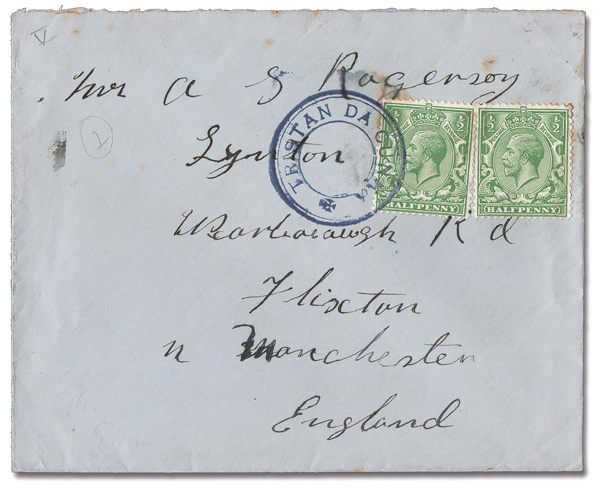 V
Mr A S Rogerson
2
TRISTAN DA CUNHA
½ ½
HALFPENNY
½ ½
HALFPENNY
Lynton
Rd
Flixton
n Manchester
England